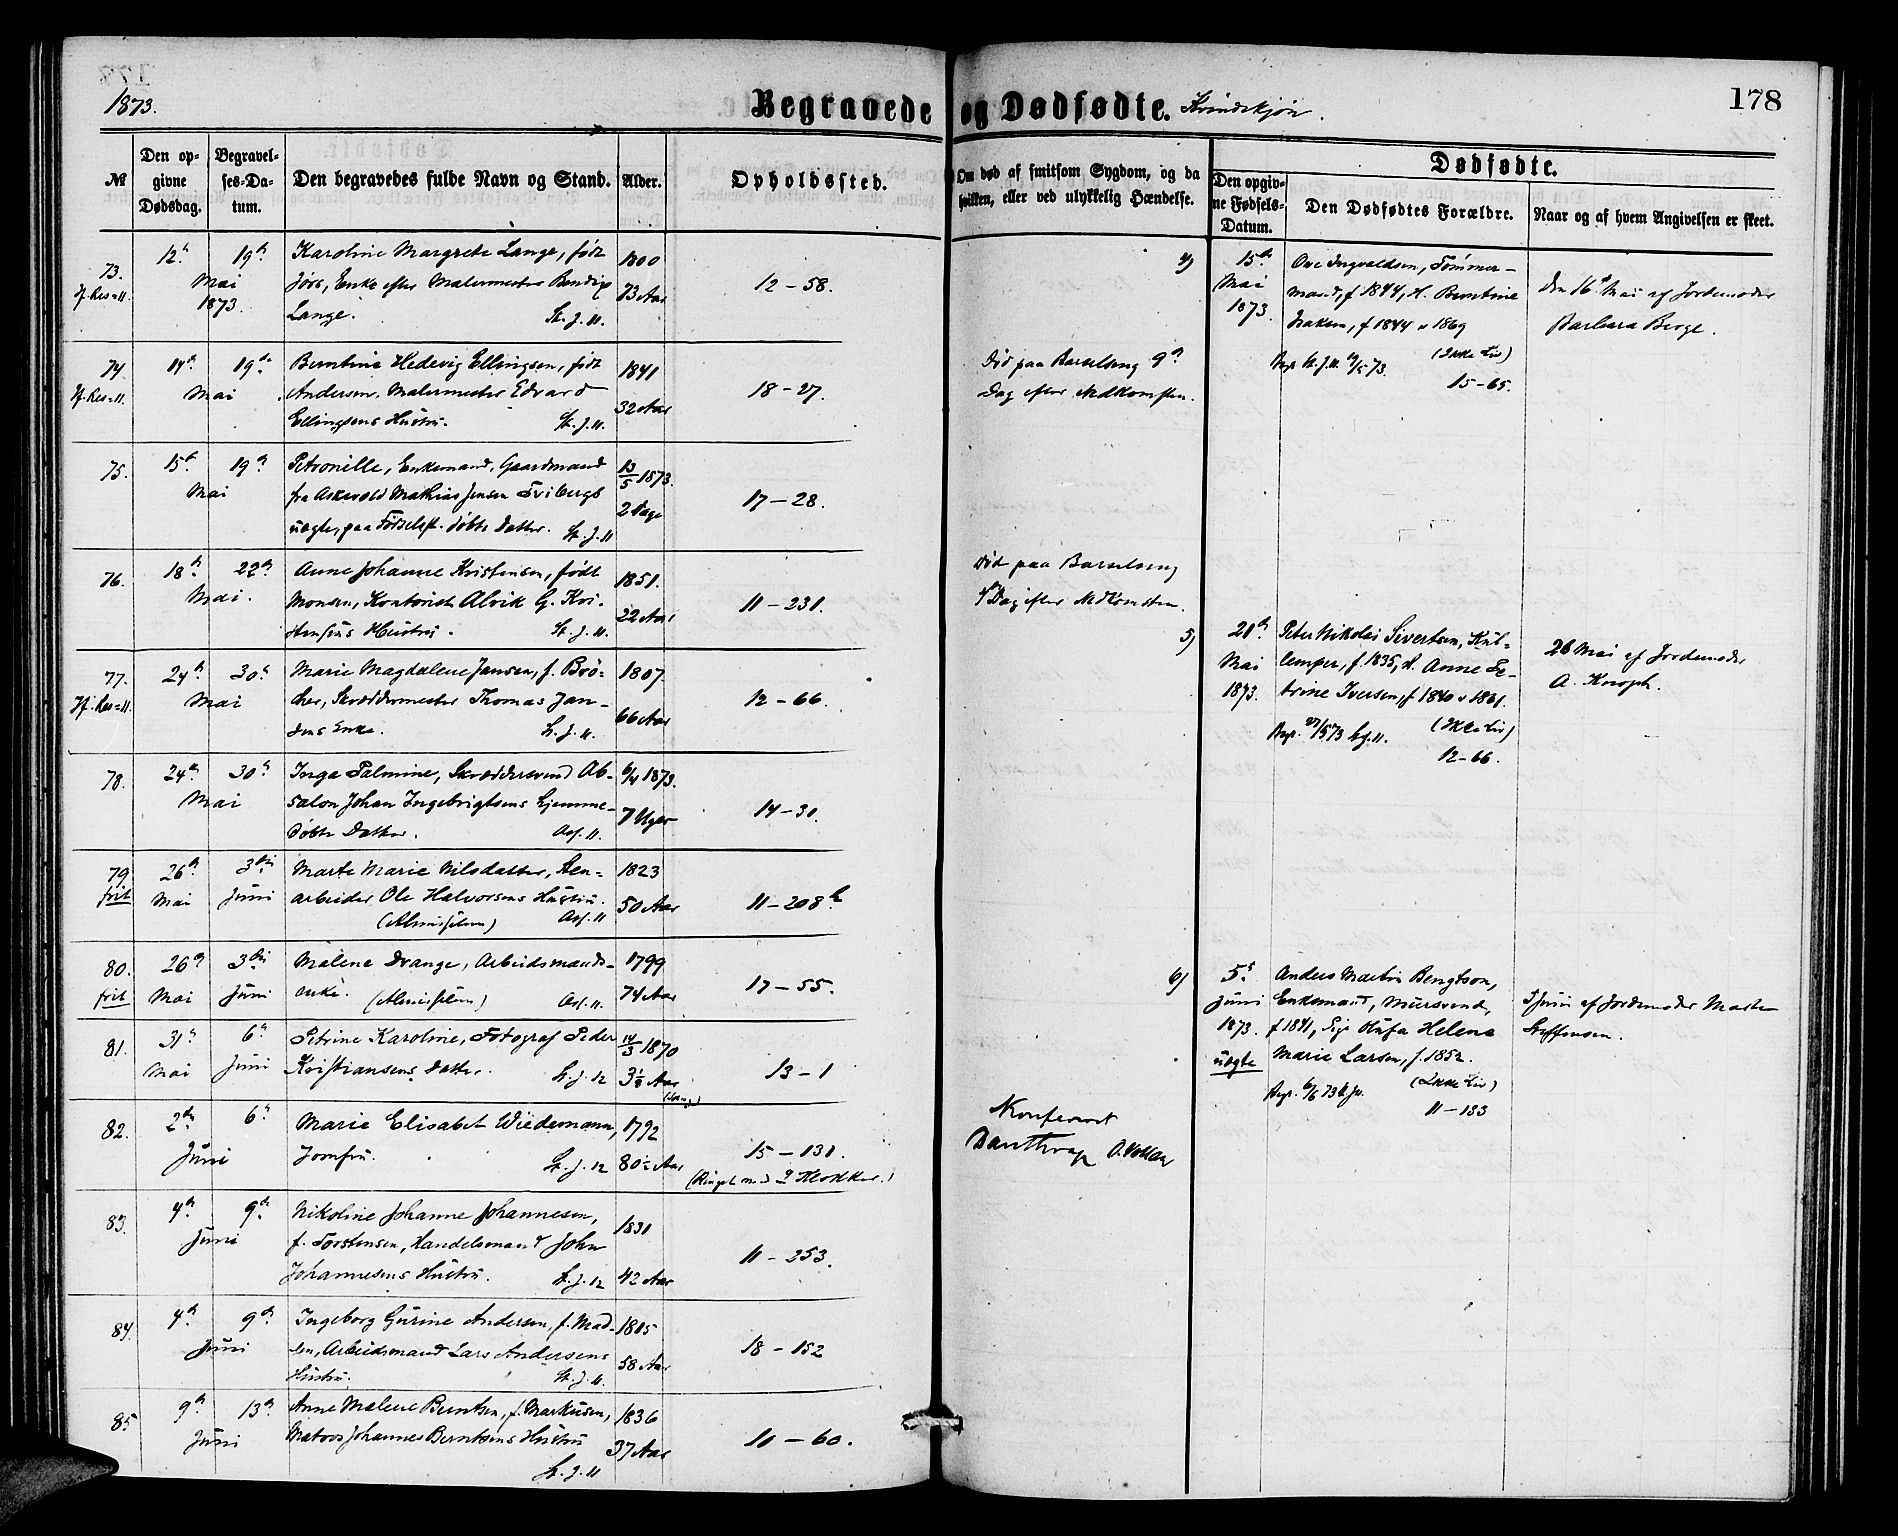 1873.
Begravede og Dødfødte. Kvindekjøn.
178
№
Den opgivne Dødsdag.
Begravelses-Datum.
Den begravedes fulde Navn og Stand.
Alder.
Opholdssted.
Om død af smitsom Sygdom, og da
hvilken, eller ved ulykkelig Hændelse.
Dødfødte.
Den opgivne Fødsels-Datum.
Den Dødfødtes Forældre.
Naar og af hvem Angivelsen er skeet.
73.
12te 19de
Mai
1873.
Karoline Margrete Lange, født
Jørs, Enke efter Malermester Bendix
Lange.
1800
73 Aar
12-58.
74.
14de 19de
Mai
Berntine Hedevig Ellingsen, født
Andersen, Malermester Edvard
Ellingsens Hustru.
1841
32 Aar
18-27.
Død paa Barselseng 9de
Dag efter Nedkomsten.
75.
15de 19de
Mai
Petronille, Enkemand, Gaardmand
fra Askevold Mathias Jensen
uægte, paa Fødselsst. døbte Datter.
13/5 1873.
2 Dage
17-28.
76.
18de 22de
Mai.
Anne Johanne Kristensen, født
Monsen, Kontorist Alvik G. Kristensens Hustru.
1851.
22 Aar
11-231.
Død paa Barselseng
Dag efter Nedkomsten.
77.
24de 30te
Mai
Marie Magdalene Jansen, f. Brøcher, Skræddermester Thomas Jansens Enke.
1807.
66 Aar
12-66.
78.
24de 30te
Mai
Inga Palmine, Skræddersvend Absalon Johan Ingebrigtsens hjemmedøbte Datter.
6/4 1873.
7 Uger
14-30.
79
frit
26de Mai
3die Juni
Marte Marie Nilsdatter, Stenarbeider Ole Halvorsens Hustru.
1823
50 Aar
11-208b
80.
frit
26de Mai
3die Juni
Malene Drange, Arbeidsmands-
enke.
1799
74 Aar
17-55.
81.
31te Mai
6te Juni
Petrine Karoline, Fotograf Peder
Kristiansens Datter.
14/3 1870
13-1
82.
2den 6te
Juni
Marie Elisabet Wiedemann,
Jomfru.
1792
80½ Aar
15-131.
(Ringet med 2 Klokker.)
Konfereret
83.
4de 9de
Juni
Nikoline Johanne Johannesen,
f. Torstensen, Handelsmand John
Johannesens Hustru.
1831
42 Aar
11-253.
84.
4de 9de
Juni
Ingeborg Gurine Andersen, f. Madsen, Arbeidsmand Lars Andersens
Hustru.
1815
58 Aar
18-152
85
9de 13de
Juni
Anne Malene Berntsen, f. Markusen,
Matros Johannes Berntsens Hustru
1836
37 Aar
11-60.
4)
15de
Mai
1873.
Ove Ingvaldsen, Tømmer-
mand, f 1844, H. Berntine
Isaksen, f 1844 v 1869
(Ikke Liv)
15-65.
Den 16de Mai af Jordemoder
Barbara Berge.
5)
21de
Mai
1873.
Peter Nikolai Sivertsen, Kul-
lemper, f. 1835, H. Anne Petrine Iversen, f 1840 v 1861.
(Ikke Liv)
12-66.
26 Mai af Jordemoder
A. Knoph.
6)
5te
Juni
1873.
uægte
Anders Martin Bengtson,
Enkemand, Mursvend,
f 1841, Pige Olufa Helene
Marie Larsen, f. 1852.
(Ikke Liv)
11-183
5 Juni af Jordemoder Marte
Steffensen.